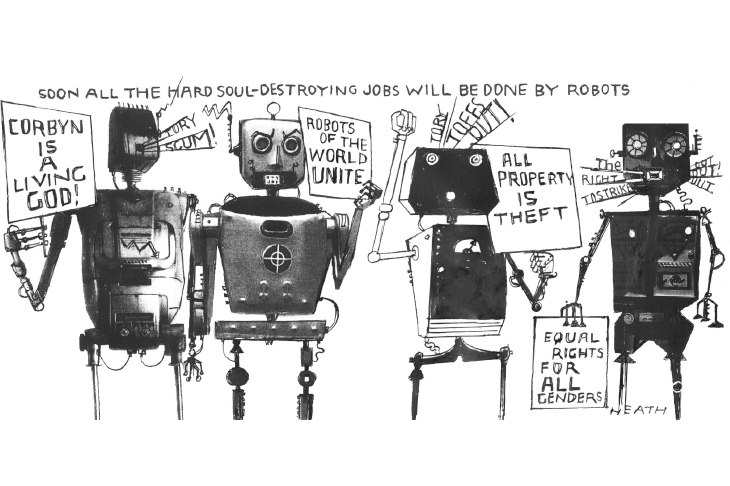 SOON ALL THE HARD SOUL-DESTROYING JOBS WILL BE DONE BY ROBOTS
CORBYN
IS
A
LIVING
GOD!
TORY
SCUM!
ROBOTS
OF THE
WORLD
UNITE
TORY
TOFFS
OUT!
ALL
PROPERTY
IS
THEFT
The
RIGHT
TO STRIKE
OUT!
OUT
EQUAL
RIGHTS
FOR
ALL
GENDERS
HEATH